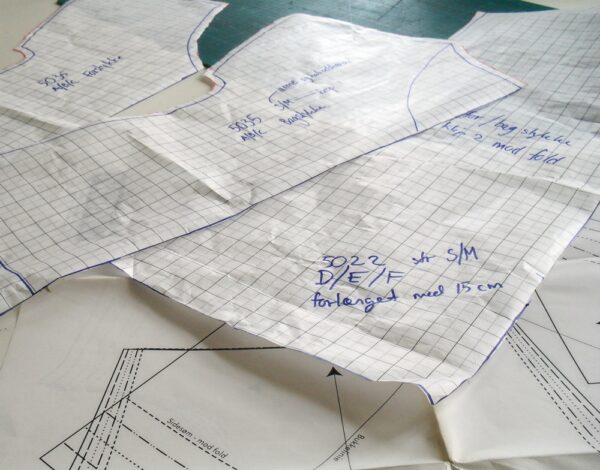 5035
A/B/C Forstykke
5035 S/M
A/B/C Bagstykke
For / bagstykke
klip 2 mod fold
5022 str S/M
D/E/F
forlænget med 15 cm
Sidesøm - mod fold